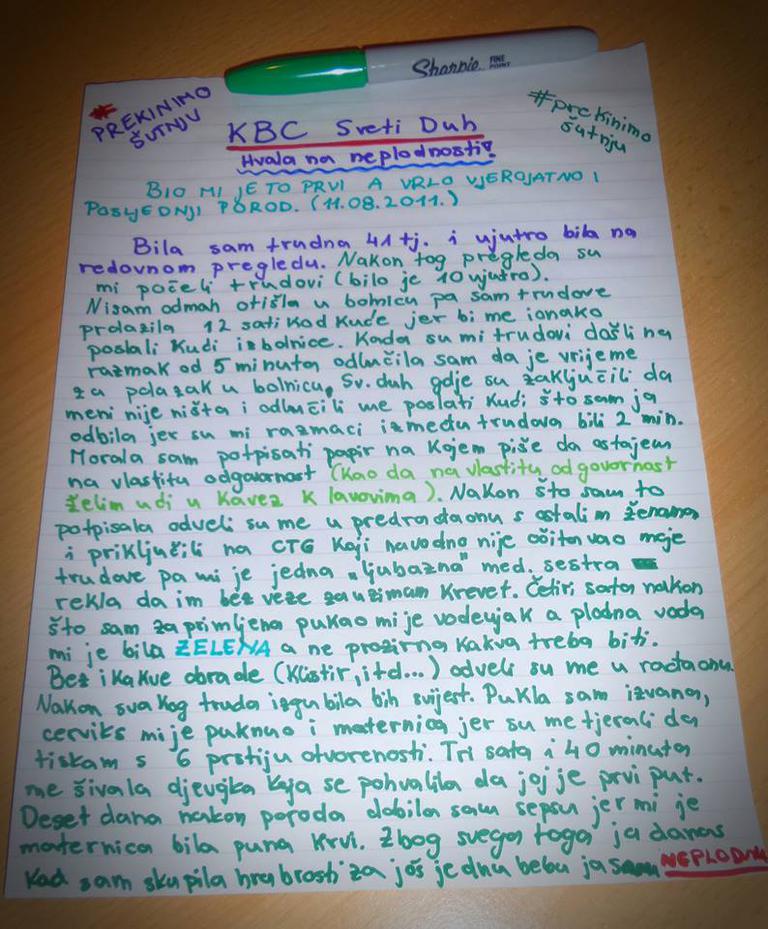 Sharpie FINE POINT
#PREKINIMO ŠUTNJU
#prekinimo šutnju
KBC Sveti Duh
Hvala na neplodnosti!
BIO MI JE TO PRVI A VRLO VJEROJATNO I
POSLJEDNJI POROD. (11.08.2011.)
Bila sam trudna 41 tj. i ujutro bila na
redovnom pregledu. Nakon tog pregleda su
mi počeli trudovi (bilo je 10 ujutro).
Nisam odmah otišla u bolnicu pa sam trudove
prolazila 12 sati kod kuće jer bi me ionako
poslali kući iz bolnice. Kada su mi trudovi došli na
razmak od 5 minuta odlučila sam da je vrijeme
za polazak u bolnicu, Sv. duh gdje su zaključili da
meni nije ništa i odlučili me poslati kući što sam ja
odbila jer su mi razmaci između trudova bili 2 min.
Morala sam potpisati papir na kojem piše da ostajem
na vlastitu odgovornost (kao da na vlastitu odgovornost
želim ući u kavez k lavovima). Nakon što sam to
potpisala odveli su me u predrađaonu s ostalim ženama
i priključili na CTG koji navodno nije očitavao moje
trudove pa mi je jedna „ljubazna" med. sestra
rekla da im bez veze zauzimam krevet. Četiri sata nakon
što sam zaprimljena pukao mi je vodenjak a plodna voda
mi je bila ZELENA a ne prozirna kakva treba biti.
Bez ikakve obrade (klistir, itd...) odveli su me u rađaonu.
Nakon svakog truda izgubila bih svijest. Pukla sam izvana,
cerviks mi je puknuo i maternica jer su me tjerali da
tiskam s 6 prstiju otvorenosti. Tri sata i 40 minuta
me šivala djevojka koja se pohvalila da joj je prvi put.
Deset dana nakon poroda dobila sam sepsu jer mi je
maternica bila puna krvi. Zbog svega toga ja danas
kad sam skupila hrabrosti za još jednu bebu ja sam NEPLODNA